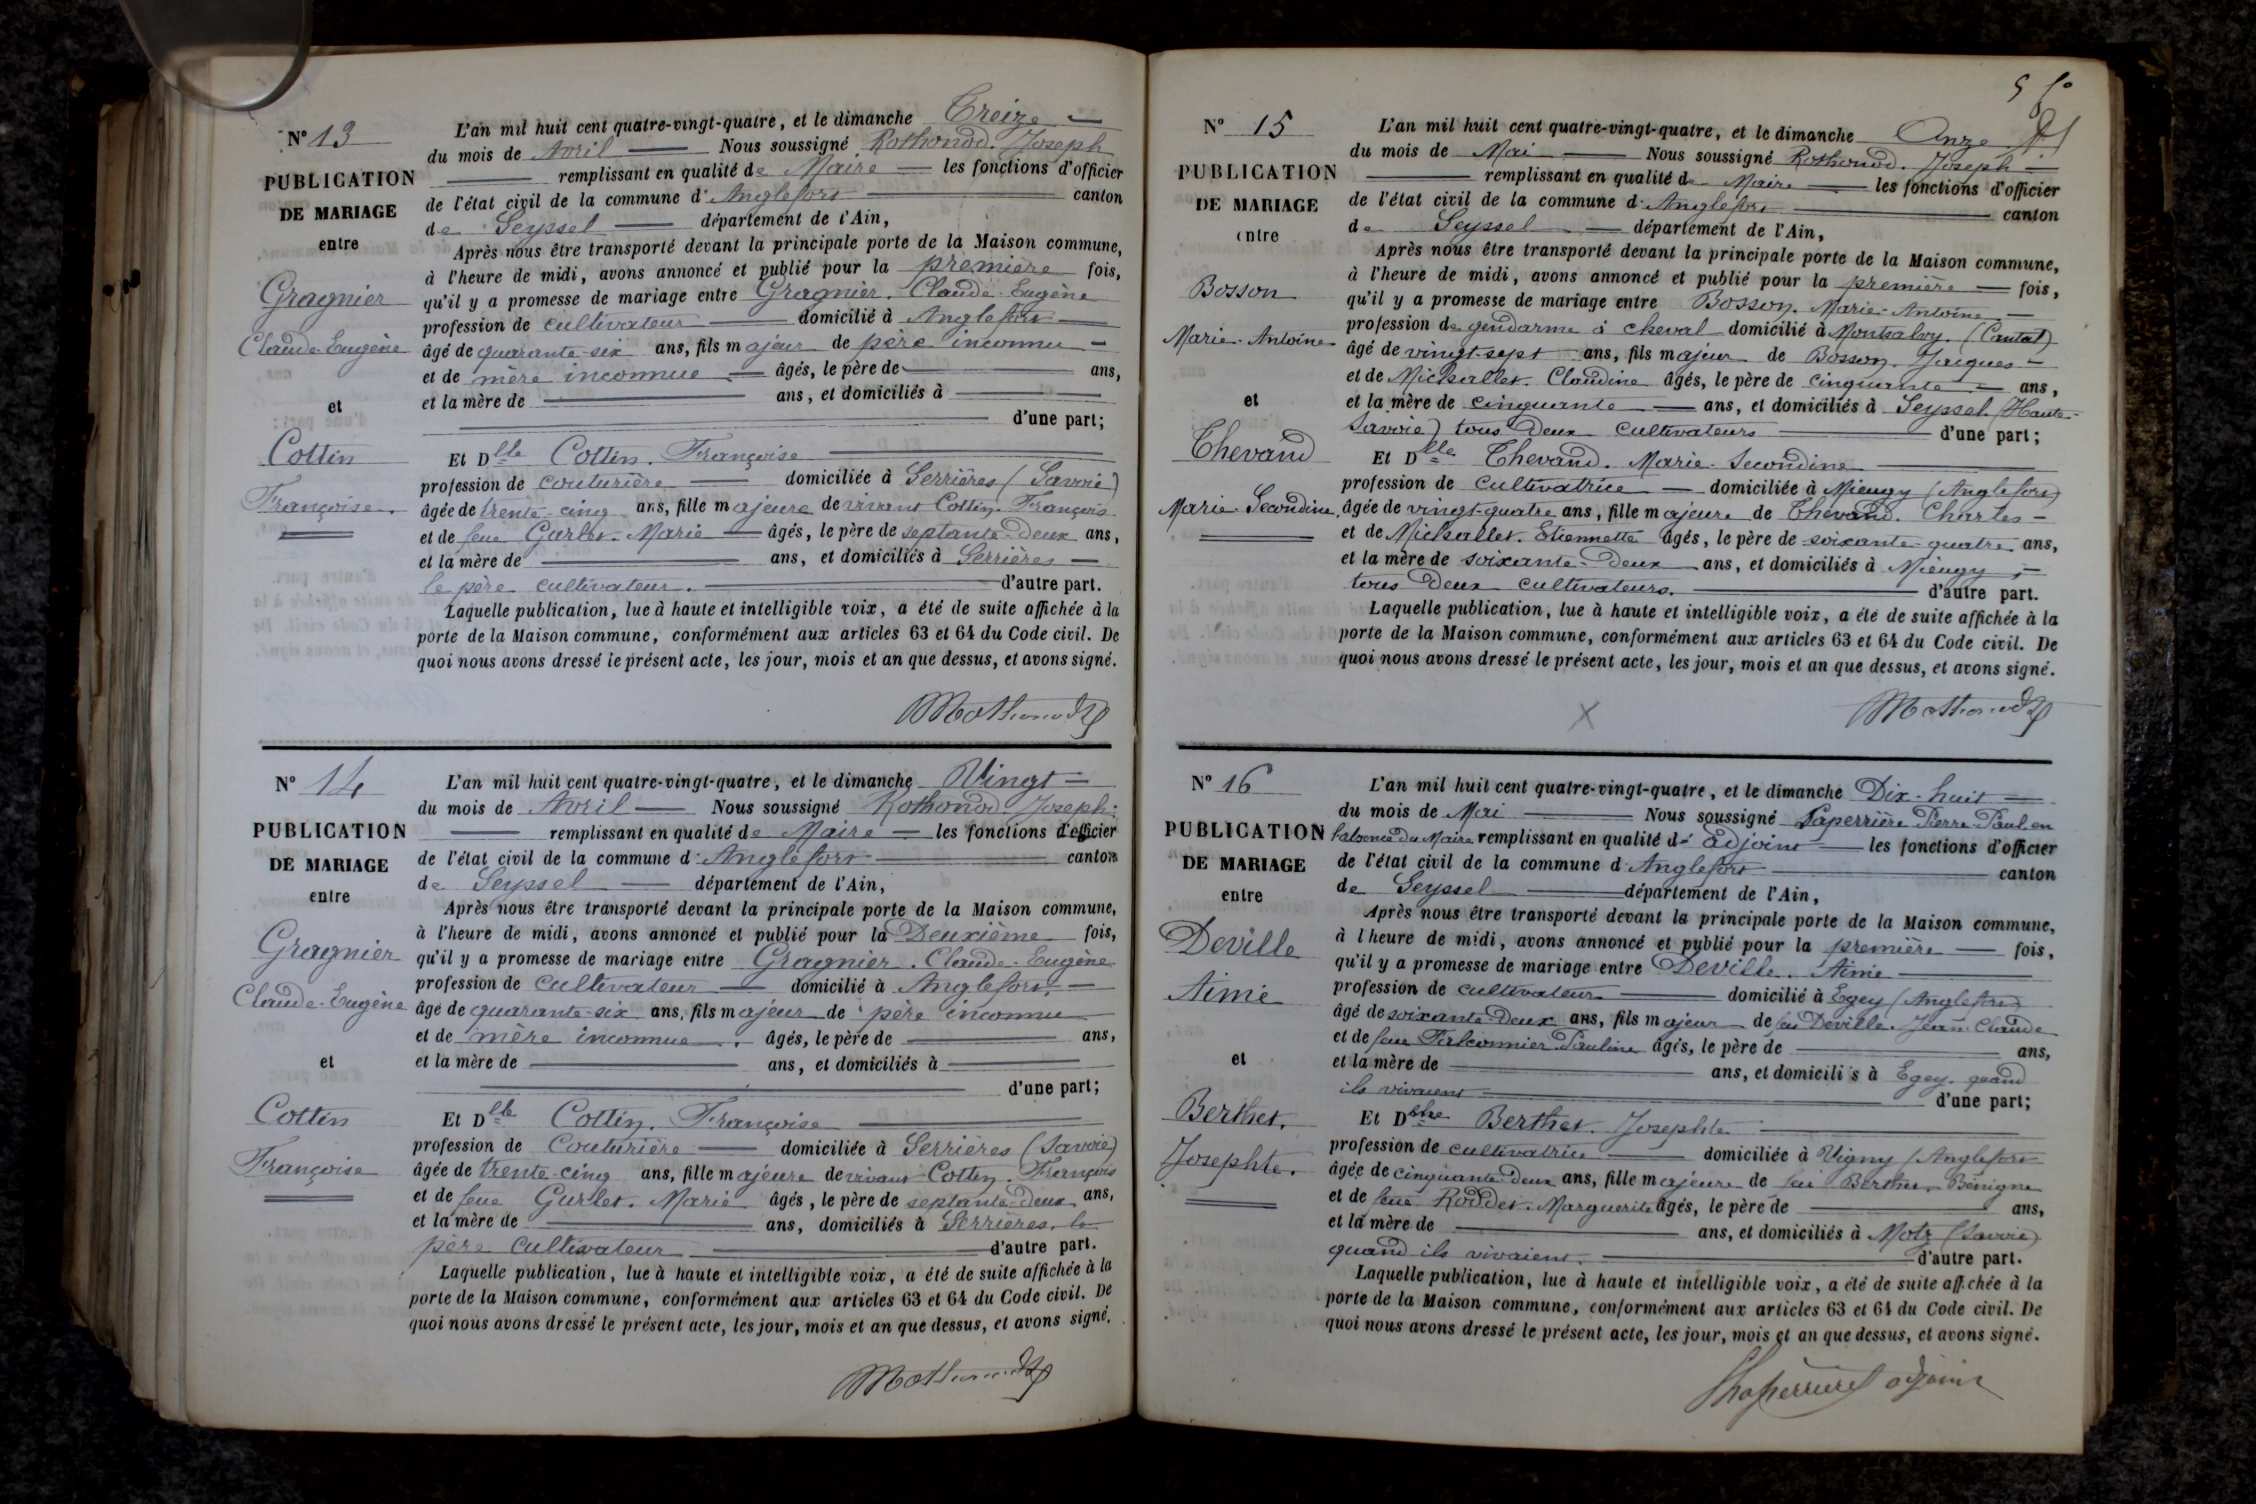 N° 13
PUBLICATION
DE MARIAGE
entre
Gragnier
Claude Eugène
et
Cottin
Françoise.
L'an mil huit cent quatre-vingt-quatre, et le dimanche Treize
du mois de Avril Nous soussigné Rothonod. Joseph
remplissant en qualité de Maire les fonctions d'officier
de l'état civil de la commune d' Anglefort canton
de Seyssel département de l'Ain,
Après nous être transporté devant la principale porte de la Maison commune,
à l'heure de midi, avons annoncé et publié pour la première fois,
qu'il y a promesse de mariage entre Gragnier. Claude Eugène
profession de cultivateur domicilié à Anglefort
âgé de quarante-six ans, fils majeur de père inconnu
et de mère inconnue âgés, le père de ans,
et la mère de ans, et domiciliés à
d'une part;
Et Dlle Cottin. Françoise
profession de couturière domiciliée à Serrières (Savoie)
âgée de trente-cinq ans, fille majeure de vivant Cottin. François
et de feue Gurlet. Marie âgés, le père de septante-deux ans,
et la mère de ans, et domiciliés à Serrières
le père cultivateur. d'autre part.
Laquelle publication, lue à haute et intelligible voix, a été de suite affichée à la
porte de la Maison commune, conformément aux articles 63 et 64 du Code civil. De
quoi nous avons dressé le présent acte, les jour, mois et an que dessus, et avons signé.
N° 14
PUBLICATION
DE MARIAGE
entre
Gragnier
Claude-Eugène
et
Cottin
Françoise
L'an mil huit cent quatre-vingt-quatre, et le dimanche Vingt
du mois de Avril Nous soussigné Rothonod. Joseph.
remplissant en qualité de Maire les fonctions d'officier
de l'état civil de la commune d' Anglefort canton
de Seyssel département de l'Ain,
Après nous être transporté devant la principale porte de la Maison commune,
à l'heure de midi, avons annoncé et publié pour la Deuxième fois,
qu'il y a promesse de mariage entre Gragnier. Claude-Eugène
profession de cultivateur domicilié à Anglefort.
âgé de quarante-six ans, fils majeur de père inconnu
et de mère inconnue. âgés, le père de ans,
et la mère de ans, et domiciliés à
d'une part;
Et Dlle Cottin. Françoise
profession de Couturière domiciliée à Serrières (Savoie)
âgée de trente-cinq ans, fille majeure de vivant Cottin. François
et de feue Gurlet. Marie âgés, le père de septante-deux ans,
et la mère de ans, domiciliés à Serrières. le
père cultivateur d'autre part.
Laquelle publication, lue à haute et intelligible voix, a été de suite affichée à la
porte de la Maison commune, conformément aux articles 63 et 64 du Code civil. De
quoi nous avons dressé le présent acte, les jour, mois et an que dessus, et avons signé.
N° 15
PUBLICATION
DE MARIAGE
entre
Bosson
Marie-Antoine
et
Thevand
Marie Secondine.
L'an mil huit cent quatre-vingt-quatre, et le dimanche Onze
du mois de Mai Nous soussigné Rothonod. Joseph
remplissant en qualité de Maire les fonctions d'officier
de l'état civil de la commune d' Anglefort canton
de Seyssel département de l'Ain,
Après nous être transporté devant la principale porte de la Maison commune,
à l'heure de midi, avons annoncé et publié pour la première fois,
qu'il y a promesse de mariage entre Bosson. Marie-Antoine
profession de gendarme à cheval domicilié à Montsalvy. (Cantal)
âgé de vingt-sept ans, fils majeur de Bosson. Jacques
et de Michallet. Claudine âgés, le père de cinquante ans,
et la mère de cinquante ans, et domiciliés à Seyssel (Haute-
Savoie) tous deux cultivateurs d'une part;
Et Dlle Thevand. Marie-Secondine
profession de cultivatrice domiciliée à Mieugy (Anglefort)
âgée de vingt-quatre ans, fille majeure de Thevand. Charles
et de Michallet. Etiennette âgés, le père de soixante-quatre ans,
et la mère de soixante-deux ans, et domiciliés à Mieugy,
tous deux cultivateurs. d'autre part.
Laquelle publication, lue à haute et intelligible voix, a été de suite affichée à la
porte de la Maison commune, conformément aux articles 63 et 64 du Code civil. De
quoi nous avons dressé le présent acte, les jour, mois et an que dessus, et avons signé.
N° 16
PUBLICATION
DE MARIAGE
entre
Deville
Aimé
et
Berthet.
Josephte.
L'an mil huit cent quatre-vingt-quatre, et le dimanche Dix-huit
du mois de Mai Nous soussigné Laperrière Pierre Paul en
l'absence du Maire remplissant en qualité d' Adjoint les fonctions d'officier
de l'état civil de la commune d' Anglefort canton
de Seyssel département de l'Ain,
Après nous être transporté devant la principale porte de la Maison commune,
à l'heure de midi, avons annoncé et publié pour la première fois,
qu'il y a promesse de mariage entre Deville. Aimé
profession de cultivateur domicilié à Egey (Anglefort)
âgé de soixante-deux ans, fils majeur de feu Deville. Jean-Claude
et de feue Falconnier Pauline âgés, le père de ans,
et la mère de ans, et domiciliés à Egey. quand
ils vivaient d'une part;
Et D Berthet. Josephte
profession de cultivatrice domiciliée à Vigny (Anglefort
âgée de cinquante-deux ans, fille majeure de feu Berthet. Bénigne
et de feue Roddet. Marguerite âgés, le père de ans,
et la mère de ans, et domiciliés à Motz (Savoie)
quand ils vivaient. d'autre part.
Laquelle publication, lue à haute et intelligible voix, a été de suite affichée à la
porte de la Maison commune, conformément aux articles 63 et 64 du Code civil. De
quoi nous avons dressé le présent acte, les jour, mois et an que dessus, et avons signé.
Laperrière adjoint